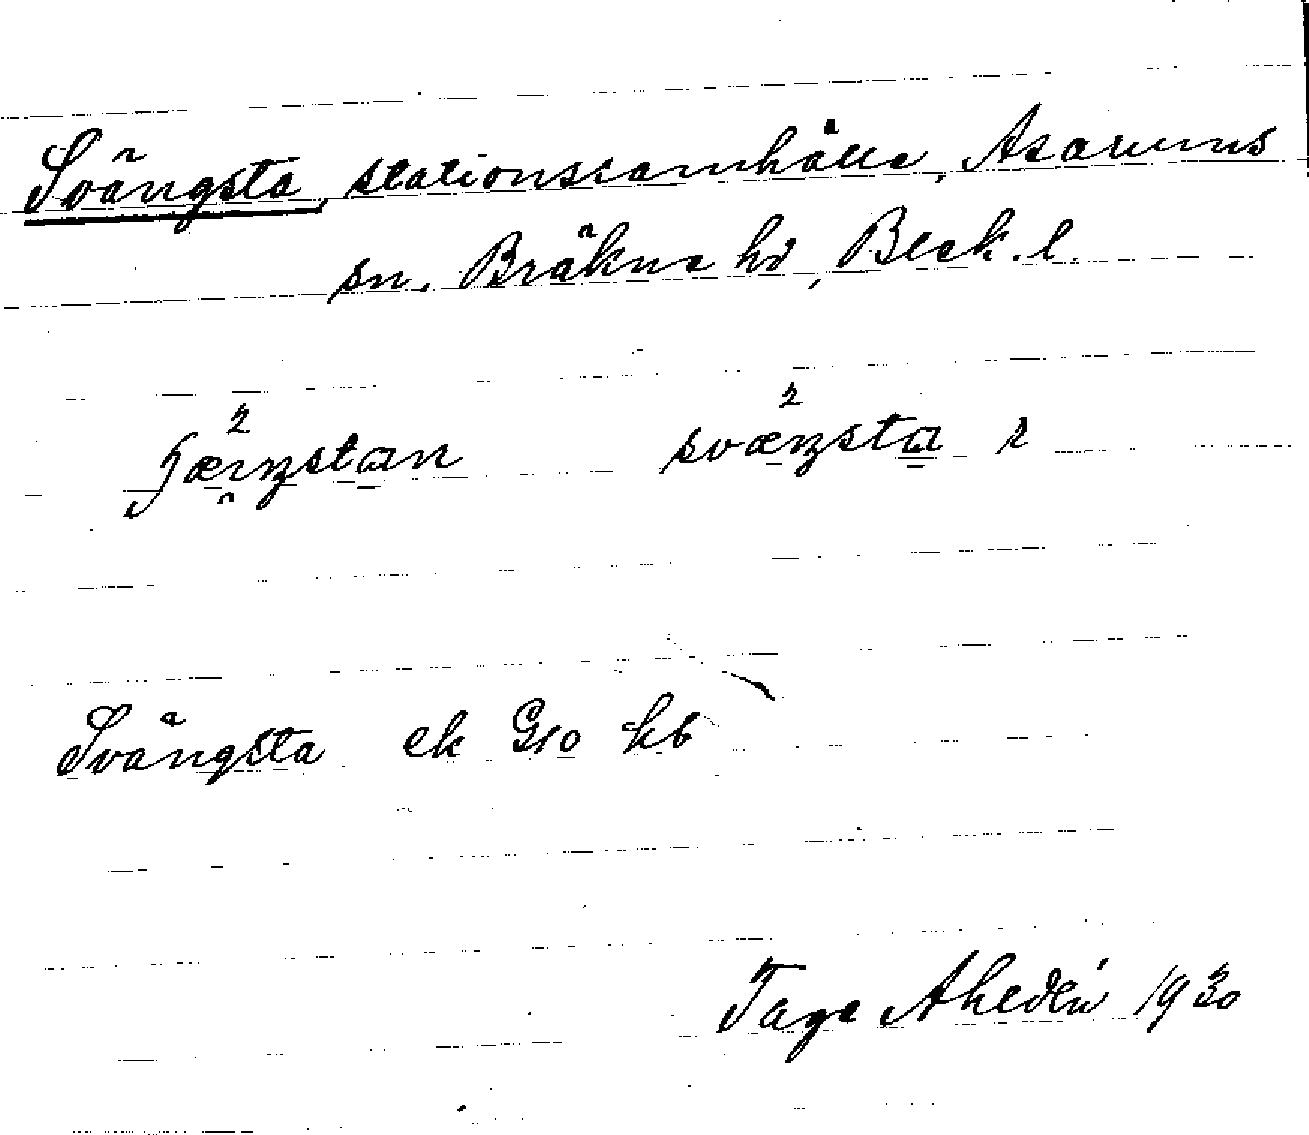 Svängsta, stationssamhälle, Asarums
sn. Bräkne hd, Blek. l.
sväŋsta
Svängsta ek G10 kb
Tage Ahldén 1930